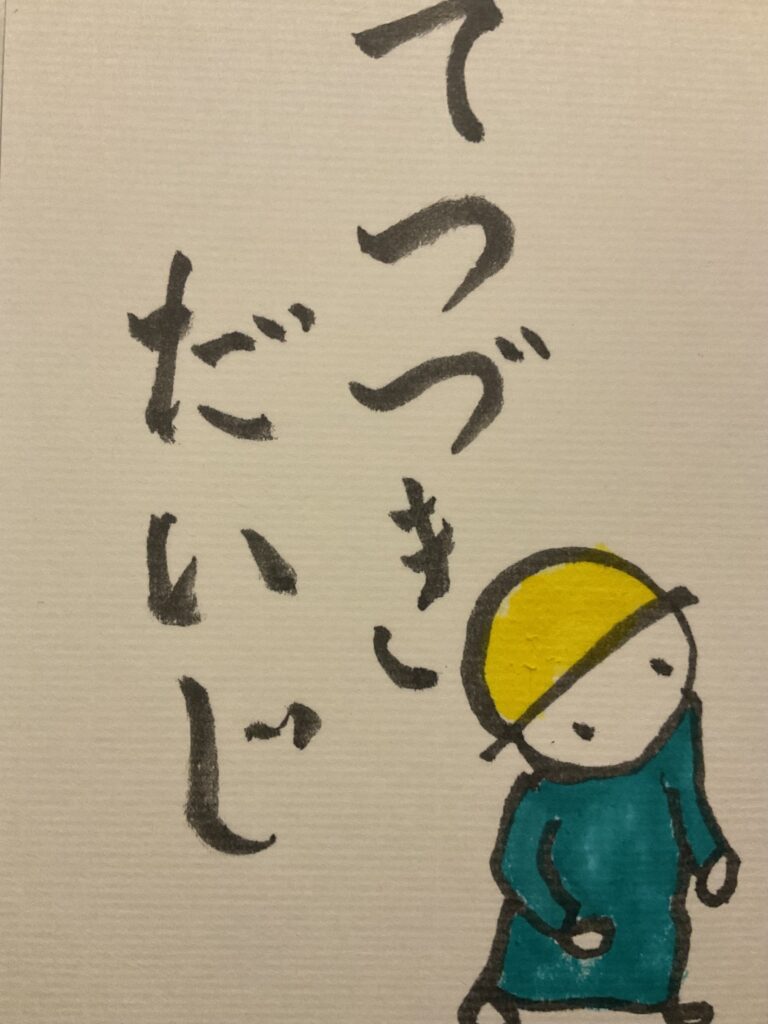 てつづき
だいじ